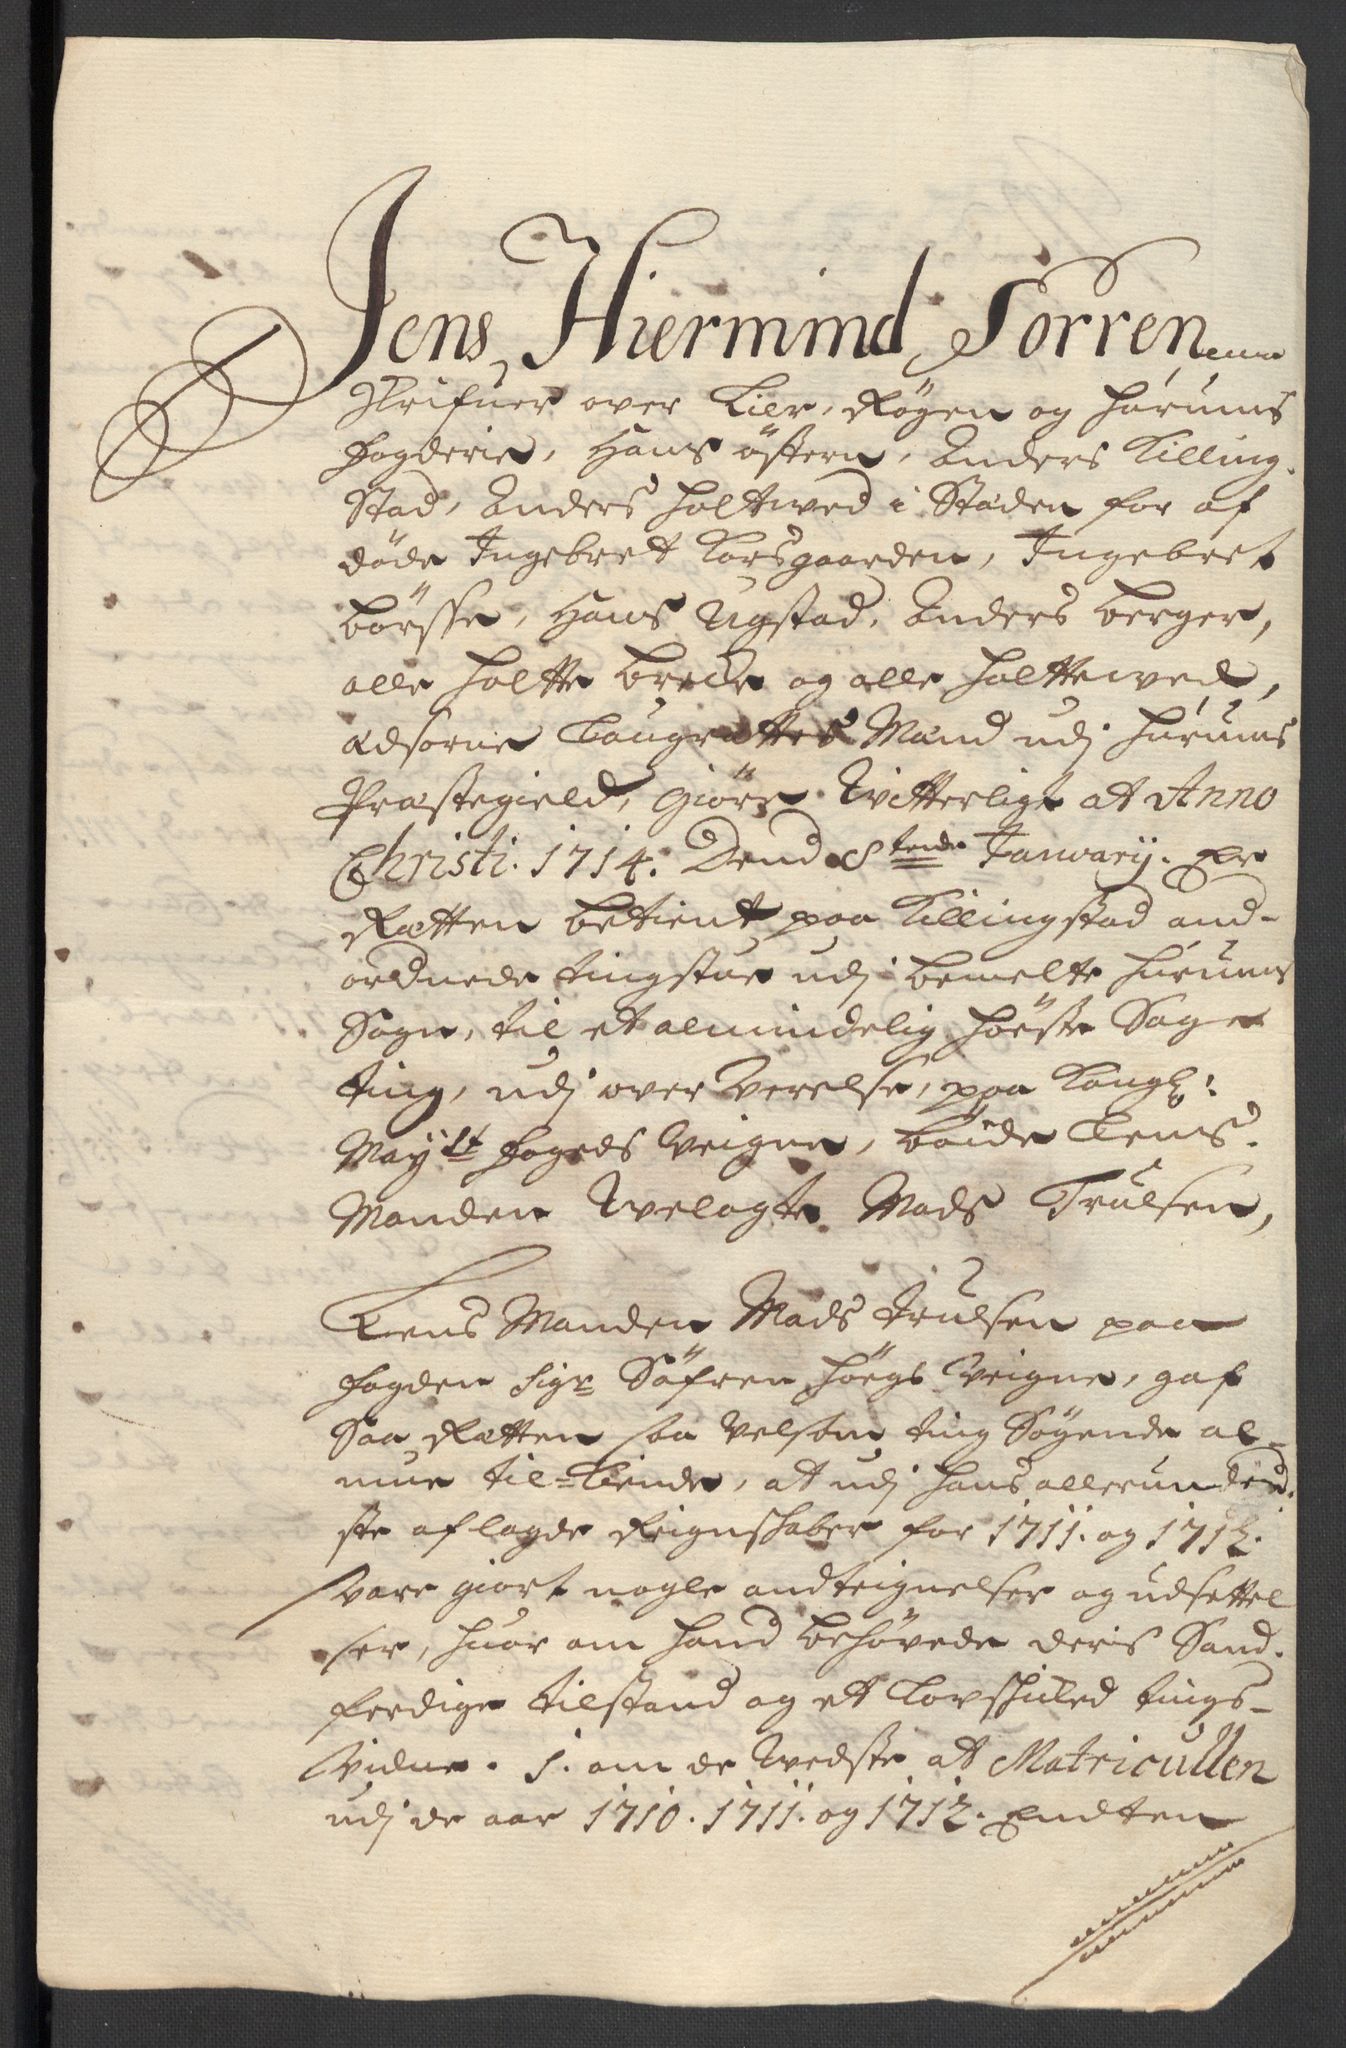 Jens Hiermind Sorren
Skrifuer over Lier, Røgen og Hurums
fogderie, Hans östern, Anders Killing-
stad, Anders Holtwed i Staden for af
döde Ingebret Korsgaarden, Ingebret
Börsse, Hans Ugstad, Anders berger,
olle Holtte brecke og olle Holttewed,
Edsorne Laugrættes Mænd udj Hurums
Præstegield, Giöre Witterligt at Anno
Christi. 1714. Dend 8tende January. Er
Rætten betient paa Killingstad and-
ordnede tingstue udj bemelte Hurums
Sogn, til et almindelig Höste Sage
ting, udj over Verelse, paa Kongl:
Mayst fogeds Veigne, böide Lens-
Manden Welagte Mads Trulsen,
Lens Manden Mads Trulsen paa
fogden Sigr Söfren Höegs Veigne, gaf
saa Rætten saa Velsom ting Søgende al-
mue til-kiende, at udj Hans allerunderd-
ste aflagde Reignskaber for 1711. og 1712.
vare giort nogle andteignelser og udsettel
ser, Huor om Hand behövede deris Sand-
ferdige tilstand og et Lovskiked tings-
vidne. 1. om de Wedste at Matricullen
udj de aar 1710. 1711. og 1712. Endten